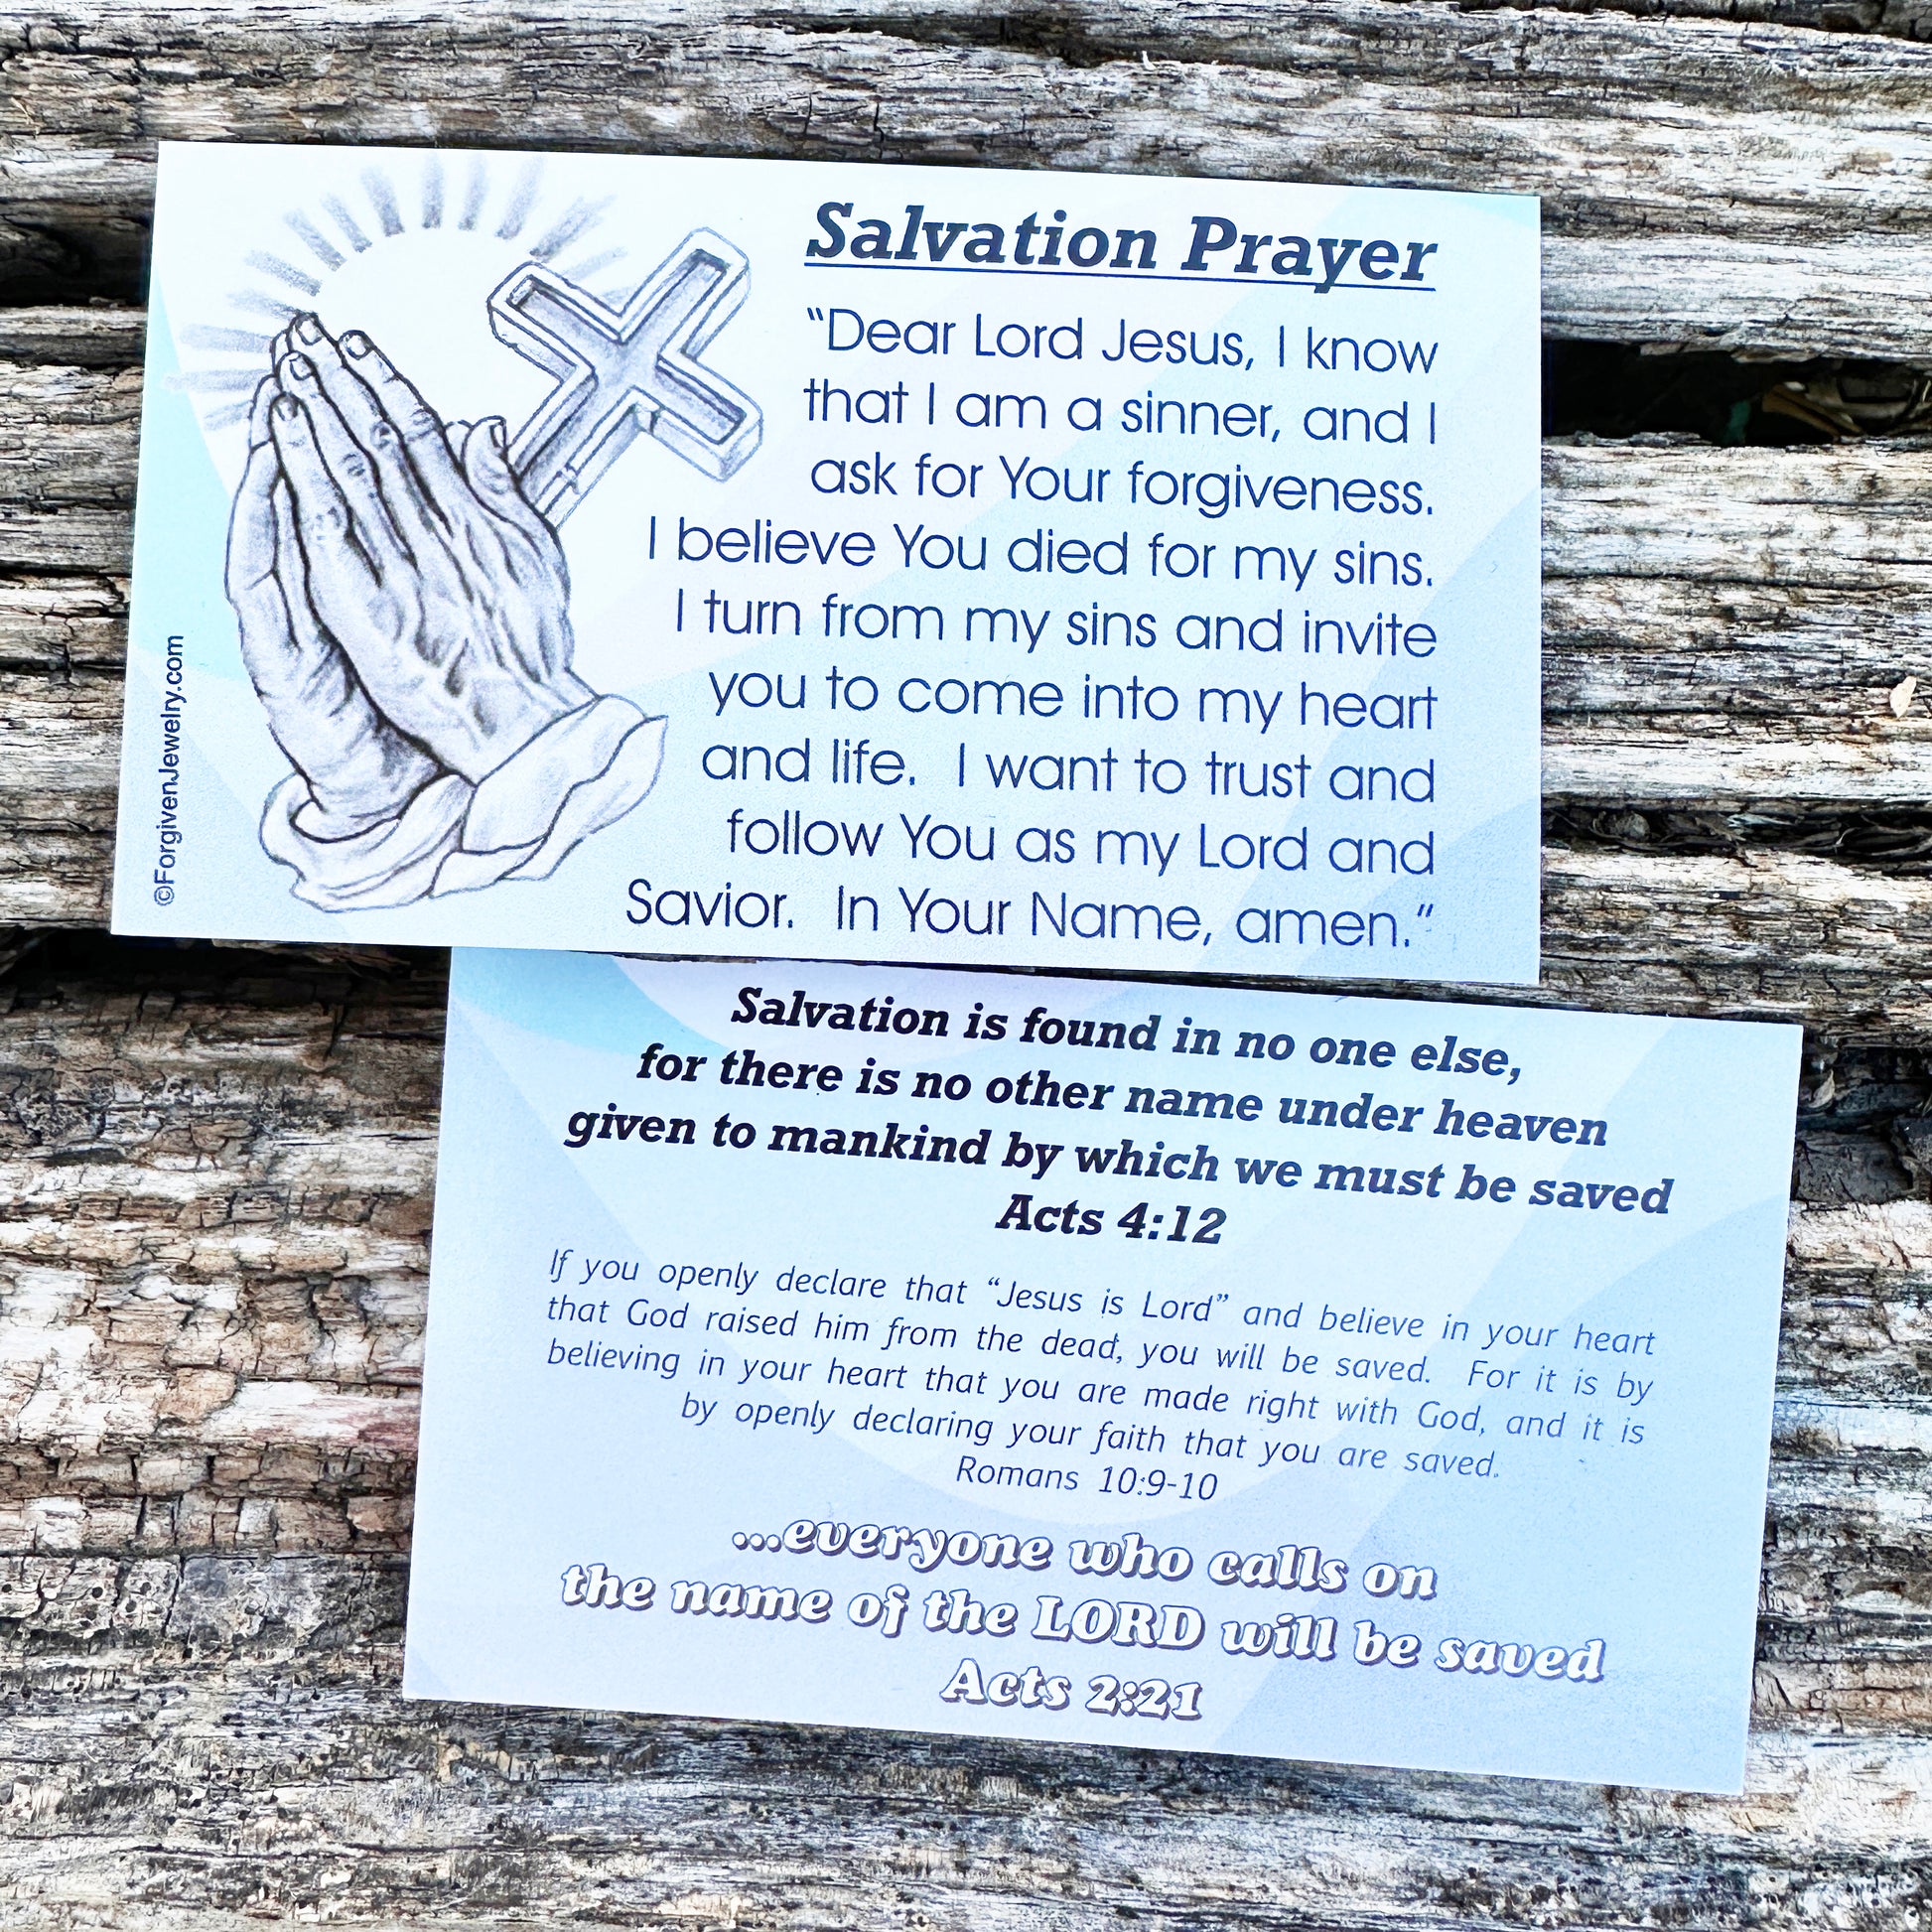 Salvation Prayer
“Dear Lord Jesus, I know
that I am a sinner, and I
ask for Your forgiveness.
I believe You died for my sins.
I turn from my sins and invite
you to come into my heart
and life. I want to trust and
follow You as my Lord and
Savior. In Your Name, amen.”
©ForgivenJewelry.com
Salvation is found in no one else,
for there is no other name under heaven
given to mankind by which we must be saved
Acts 4:12
If you openly declare that “Jesus is Lord” and believe in your heart
that God raised him from the dead, you will be saved. For it is by
believing in your heart that you are made right with God, and it is
by openly declaring your faith that you are saved.
Romans 10:9-10
...everyone who calls on
the name of the LORD will be saved
Acts 2:21